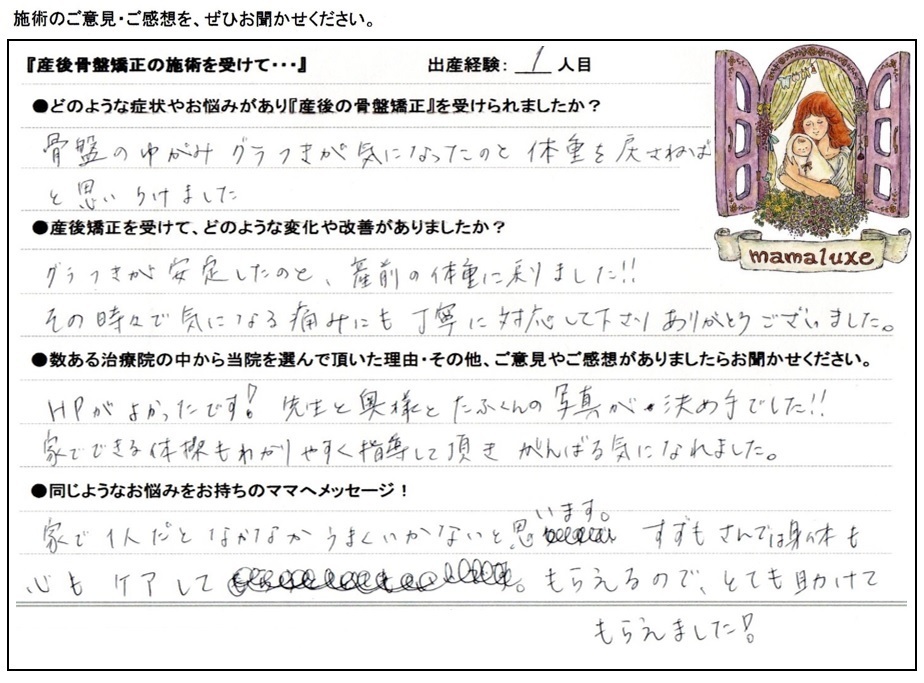 施術のご意見・ご感想を、ぜひお聞かせください。
『産後骨盤矯正の施術を受けて・・・』 出産経験: 1 人目
●どのような症状やお悩みがあり『産後の骨盤矯正』を受けられましたか？
骨盤のゆがみ グラつきが気になったのと 体重を戻さねば
と思い うけました
●産後矯正を受けて、どのような変化や改善がありましたか？
グラつきが安定したのと、産前の体重に戻りました!!
その時々で気になる痛みにも丁寧に対応して下さり ありがとうございました。
mamaluxe
●数ある治療院の中から当院を選んで頂いた理由・その他、ご意見やご感想がありましたらお聞かせください。
HPがよかったです! 先生と奥様とたふくんの写真が 決め手でした!!
家でできる体操もわかりやすく指導して頂き がんばる気になれました。
●同じようなお悩みをお持ちのママへメッセージ！
家で1人だとなかなかうまくいかないと思います。 すずもさんでは身体も
心も ケアして もらえるので、とても助けて
もらえました!